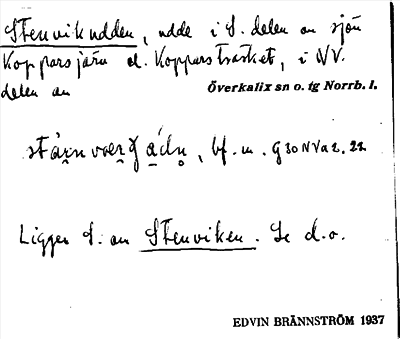 Stenvikudden, udde i S. delen av sjön
Kopparsjärv el. Kopparsträsket, i NV.
delen av
Överkalix sn o. tg Norrb. l.
bf. m. G 30 NV a 2. 22
Ligger S. om Stenviken. Se d. o.
EDVIN BRÄNNSTRÖM 1937